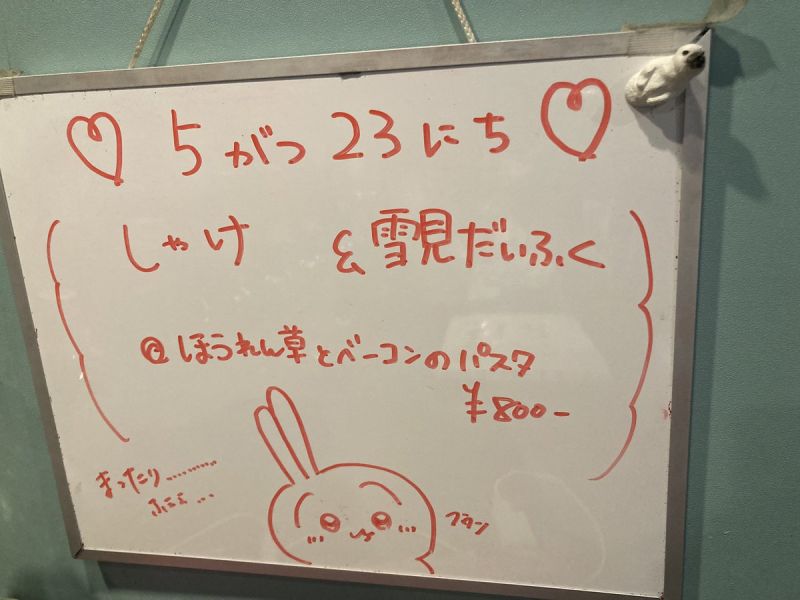 ♡ 5がつ23にち ♡
しゃけ & 雪見だいふく
@ほうれん草とベーコンのパスタ
¥800-
まったり………
ふぇぇ…